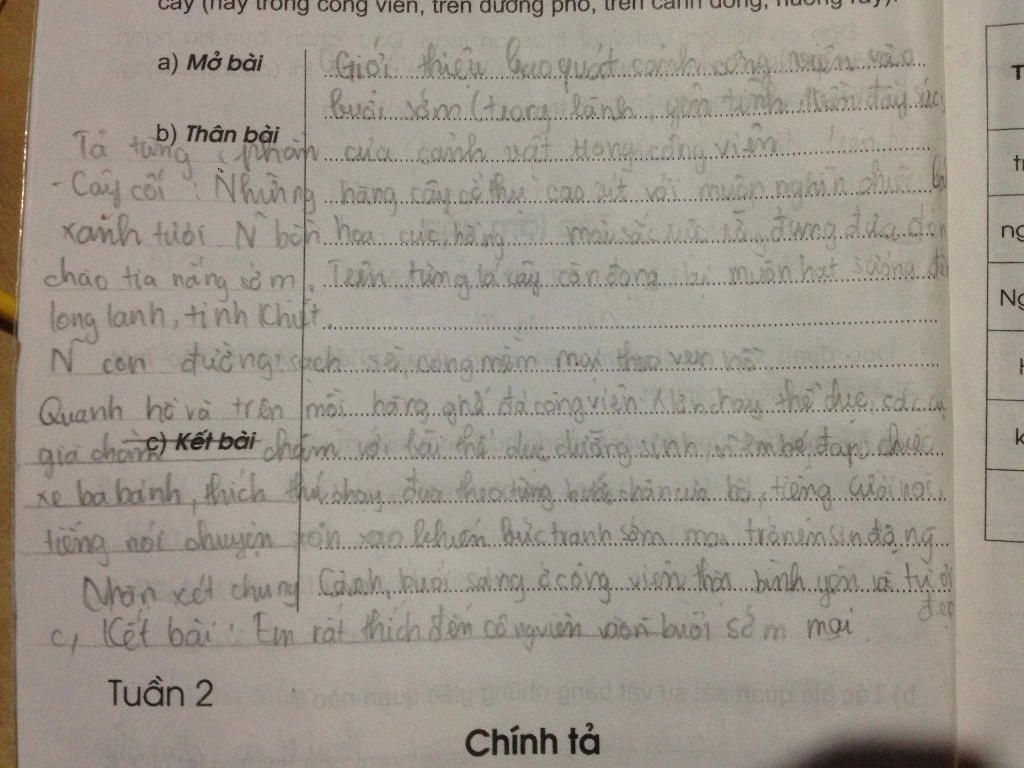 cây (hay trong công viên, trên đường phố, trên cánh đồng, nương rẫy).
a) Mở bài Giới thiệu bao quát cảnh công viên vào
buổi sớm (trong lành, yên tĩnh, tràn đầy sức
b) Thân bài
Tả từng phần của cảnh vật trong công viên
- Cây cối : Những hàng cây cổ thụ cao vút với muôn nghìn
xanh tươi N̆ bồn hoa cúc, hồng màu sắc rực rỡ, đung đưa đón
chào tia nắng sớm. Trên từng lá cây còn đọng lại muôn hạt sương
long lanh, tinh khiết.
N̆ con đường sạch sẽ, cong mềm mại theo ven hồ
Quanh hồ và trên mỗi hàng ghế đá công viên thể dục, các cụ
già chầm chậm với bài thể dục dưỡng sinh, em bé đạp chiếc
c) Kết bài
xe ba bánh, thích thú chạy đua theo từng bước chân của bố, tiếng cười nói,
tiếng nói chuyện xôn xao khiến bức tranh sớm mai trở nên sin động
Nhận xét chung Cảnh buổi sáng ở công viên thật bình yên và
đẹp
c, Kết bài : Em rất thích đến công viên vào buổi sớm mai
Tuần 2
Chính tả
T
ng
Ng
k